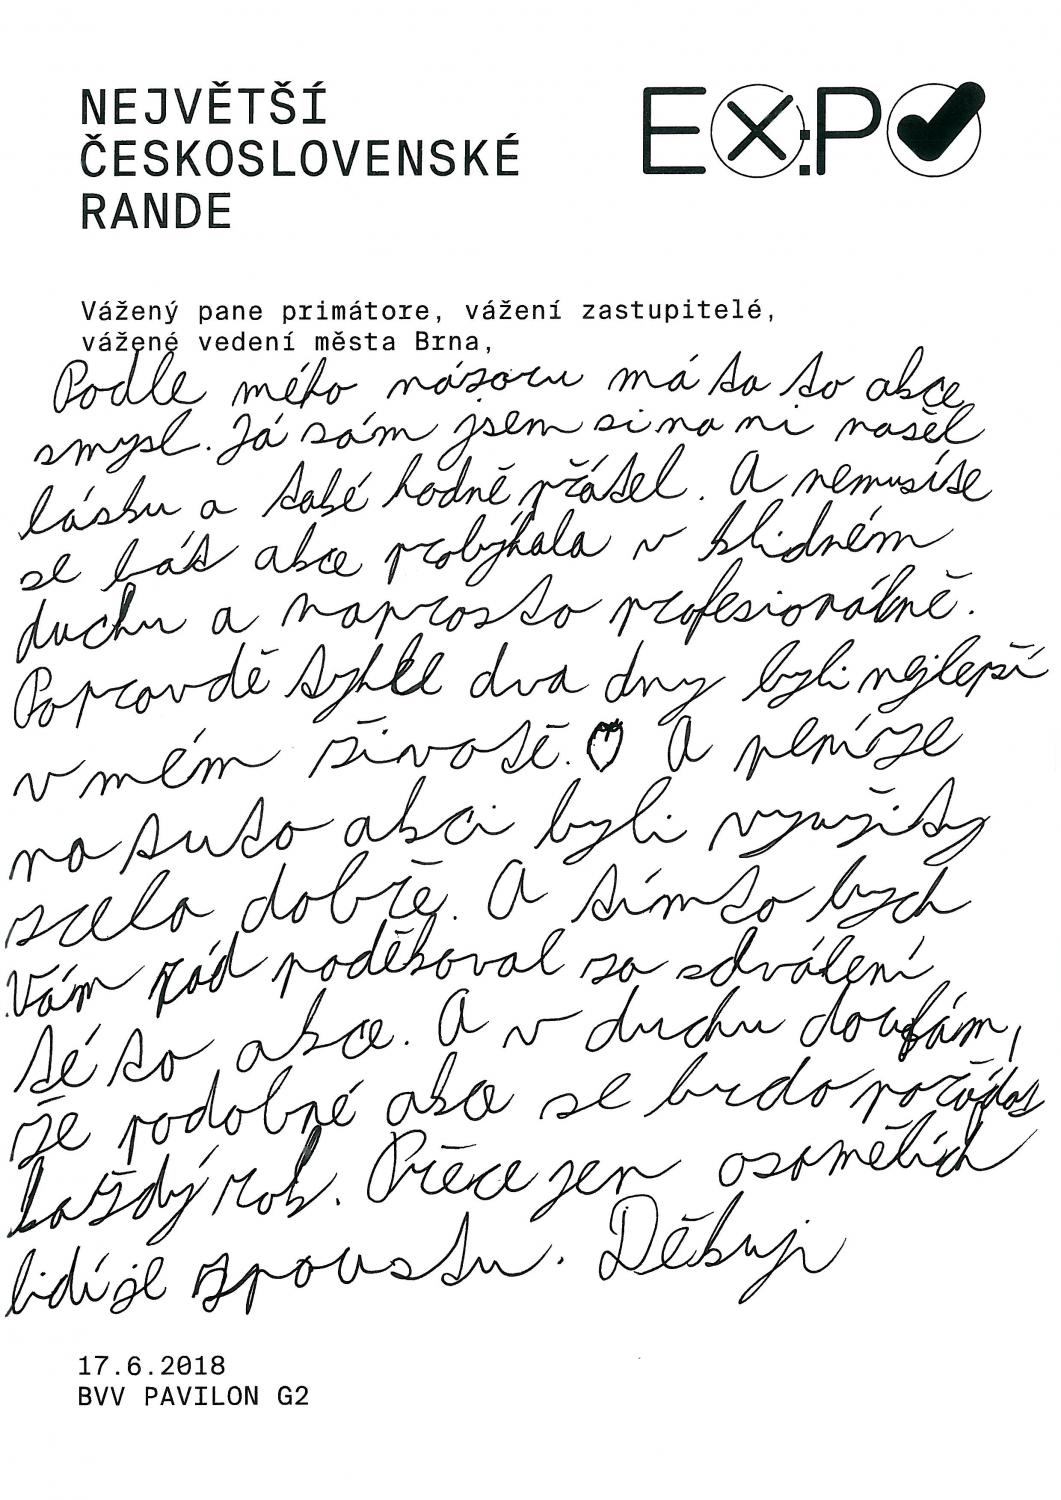 NEJVĚTŠÍ
ČESKOSLOVENSKÉ
RANDE
EX:PO
Vážený pane primátore, vážení zastupitelé,
vážené vedení města Brna,
Podle mého názoru má ta to akce
smysl. Já sám jsem si na ni našel
lásku a také hodně přátel. A nemusíte
se bát akce probýhala v klidném
duchu a naprosto profesionálně.
Popravdě tyhle dva dny byli nejlepší
v mém životě. A peníze
na tuto akci byli využity
zcela dobře. A tímto bych
Vám rád poděkoval za sdválení
této akce. A v duchu doufám,
že podobné akce se budo pořádat
každý rok. Přece jen osamělích
lidí je spoustu. Děkuji
17.6.2018
BVV PAVILON G2